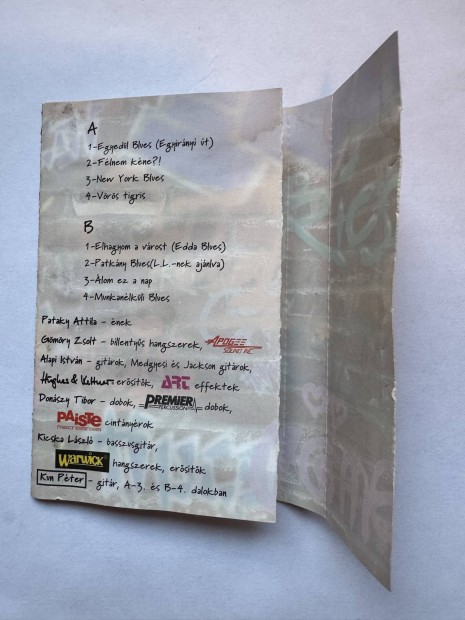 A
1-Egyedül Blues (Egyirányú út)
2-Félnem kéne?!
3-New York Blues
4-Vörös tigris
B
1-Elhagyom a várost (Edda Blues)
2-Patkány Blues(L.L.-nek ajánlva)
3-Álom ez a nap
4-Munkanélküli Blues
Pataky Attila - ének
Gömöry Zsolt - billentyűs hangszerek, APOGEE SOUND INC.
Alapi István - gitárok, Medgyesi és Jackson gitárok,
Hughes & Kettner erősítők, ART effektek
Donászy Tibor - dobok, PREMIER PERCUSSION dobok,
PAiSTe cintányérok
Kicska László - basszusgitár,
Warwick hangszerek, erősítők
Kun Péter - gitár, A-3. és B-4. dalokban